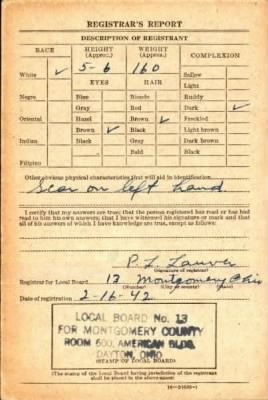 REGISTRAR'S REPORT
DESCRIPTION OF REGISTRANT
RACE HEIGHT (Approx.) WEIGHT (Approx.) COMPLEXION
White ✓ 5-6 160 Sallow
EYES HAIR Light
Negro Blue Blonde Ruddy
Gray Red Dark ✓
Oriental Hazel Brown ✓ Freckled
Brown ✓ Black Light brown
Indian Black Gray Dark brown
Bald Black
Filipino
Other obvious physical characteristics that will aid in identification
Scar on left hand
I certify that my answers are true; that the person registered has read or has had
read to him his own answers; that I have witnessed his signature or mark and that
all of his answers of which I have knowledge are true, except as follows:
(Signature of registrar)
Registrar for Local Board 13 Montgomery Ohio
(Number) (City or county) (State)
Date of registration 2-16-42
LOCAL BOARD No. 13
FOR MONTGOMERY COUNTY
ROOM 600, AMERICAN BLDG.
DAYTON, OHIO
(STAMP OF LOCAL BOARD)
(The stamp of the Local Board having jurisdiction of the registrant
shall be placed in the above space.)